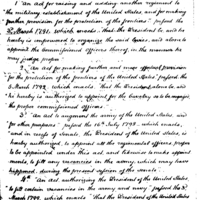 1 "An act for raising and adding another regiment to
the military establishment of the United States, and for making
further provision for the protection of the frontiers" passed the
3d March 1791. which enacts, "that the President be, and he
hereby is empowered to organize the said levies, and alone to
appoint the commissioned officers thereof, in the manner he
may judge proper."
2 "An act for making further and more effectual provision
for the protection of the frontiers of the United States" passed the
5 March 1792. which enacts, "that the President alone be, and
he hereby is authorized to appoint, for the cavalry so to be engaged,
the proper commissioned officers.
3d "An act to augment the army of the United States and
for other purposes" passed the 16th July 1798. which enacts,
"and in recess of Senate, the President of the United States, is
hereby authorized, to appoint all the regimental officers proper
to be appointed under this act, and likewise to make appoint-
ments, to fill any vacancies in the army, which may have
happened, during the present session of the senate."
4th "An act authorizing the President of the United States,
to fill certain vacancies in the army and navy" passed the 3d
March 1799. which enacts "that the President of the United